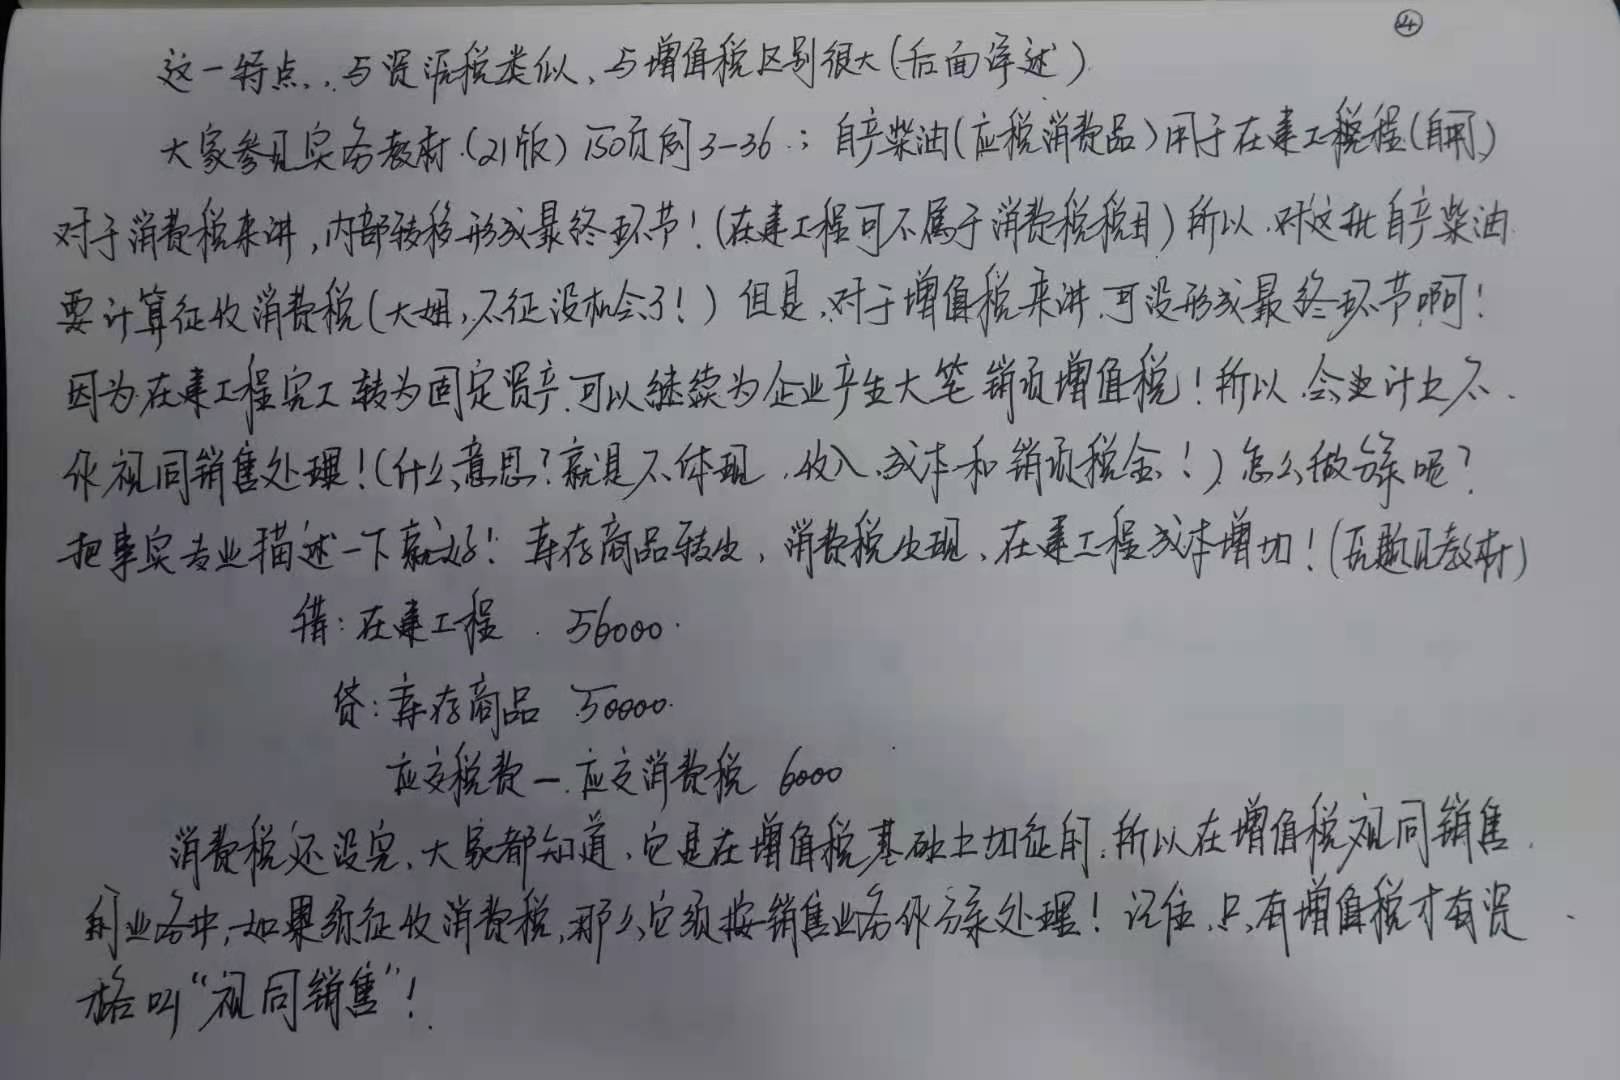 ④
这一特点,与资源税类似,与增值税区别很大(后面详述)
大家参见实务教材(21版)150页例3-36:自产柴油(应税消费品)用于在建工程(自用)
对于消费税来讲,内部转移形成最终环节!(在建工程可不属于消费税税目)所以,对这批自产柴油
要计算征收消费税(大姐,不征没机会了!)但是,对于增值税来讲,可没形成最终环节啊!
因为在建工程完工转为固定资产,可以继续为企业产生大笔销项增值税!所以,会计上不
作视同销售处理!(什么意思?就是不体现,收入,成本和销项税金!)怎么做分录呢?
把事实专业描述一下就好!库存商品转出,消费税出现,在建工程成本增加!(原题见教材)
借:在建工程 56000
贷:库存商品 50000
应交税费—应交消费税 6000
消费税还没完,大家都知道,它是在增值税基础上加征的,所以在增值税视同销售
业务中,如果须征收消费税,那么它须按销售业务作分录处理!记住,只有增值税才有资
格叫“视同销售”!